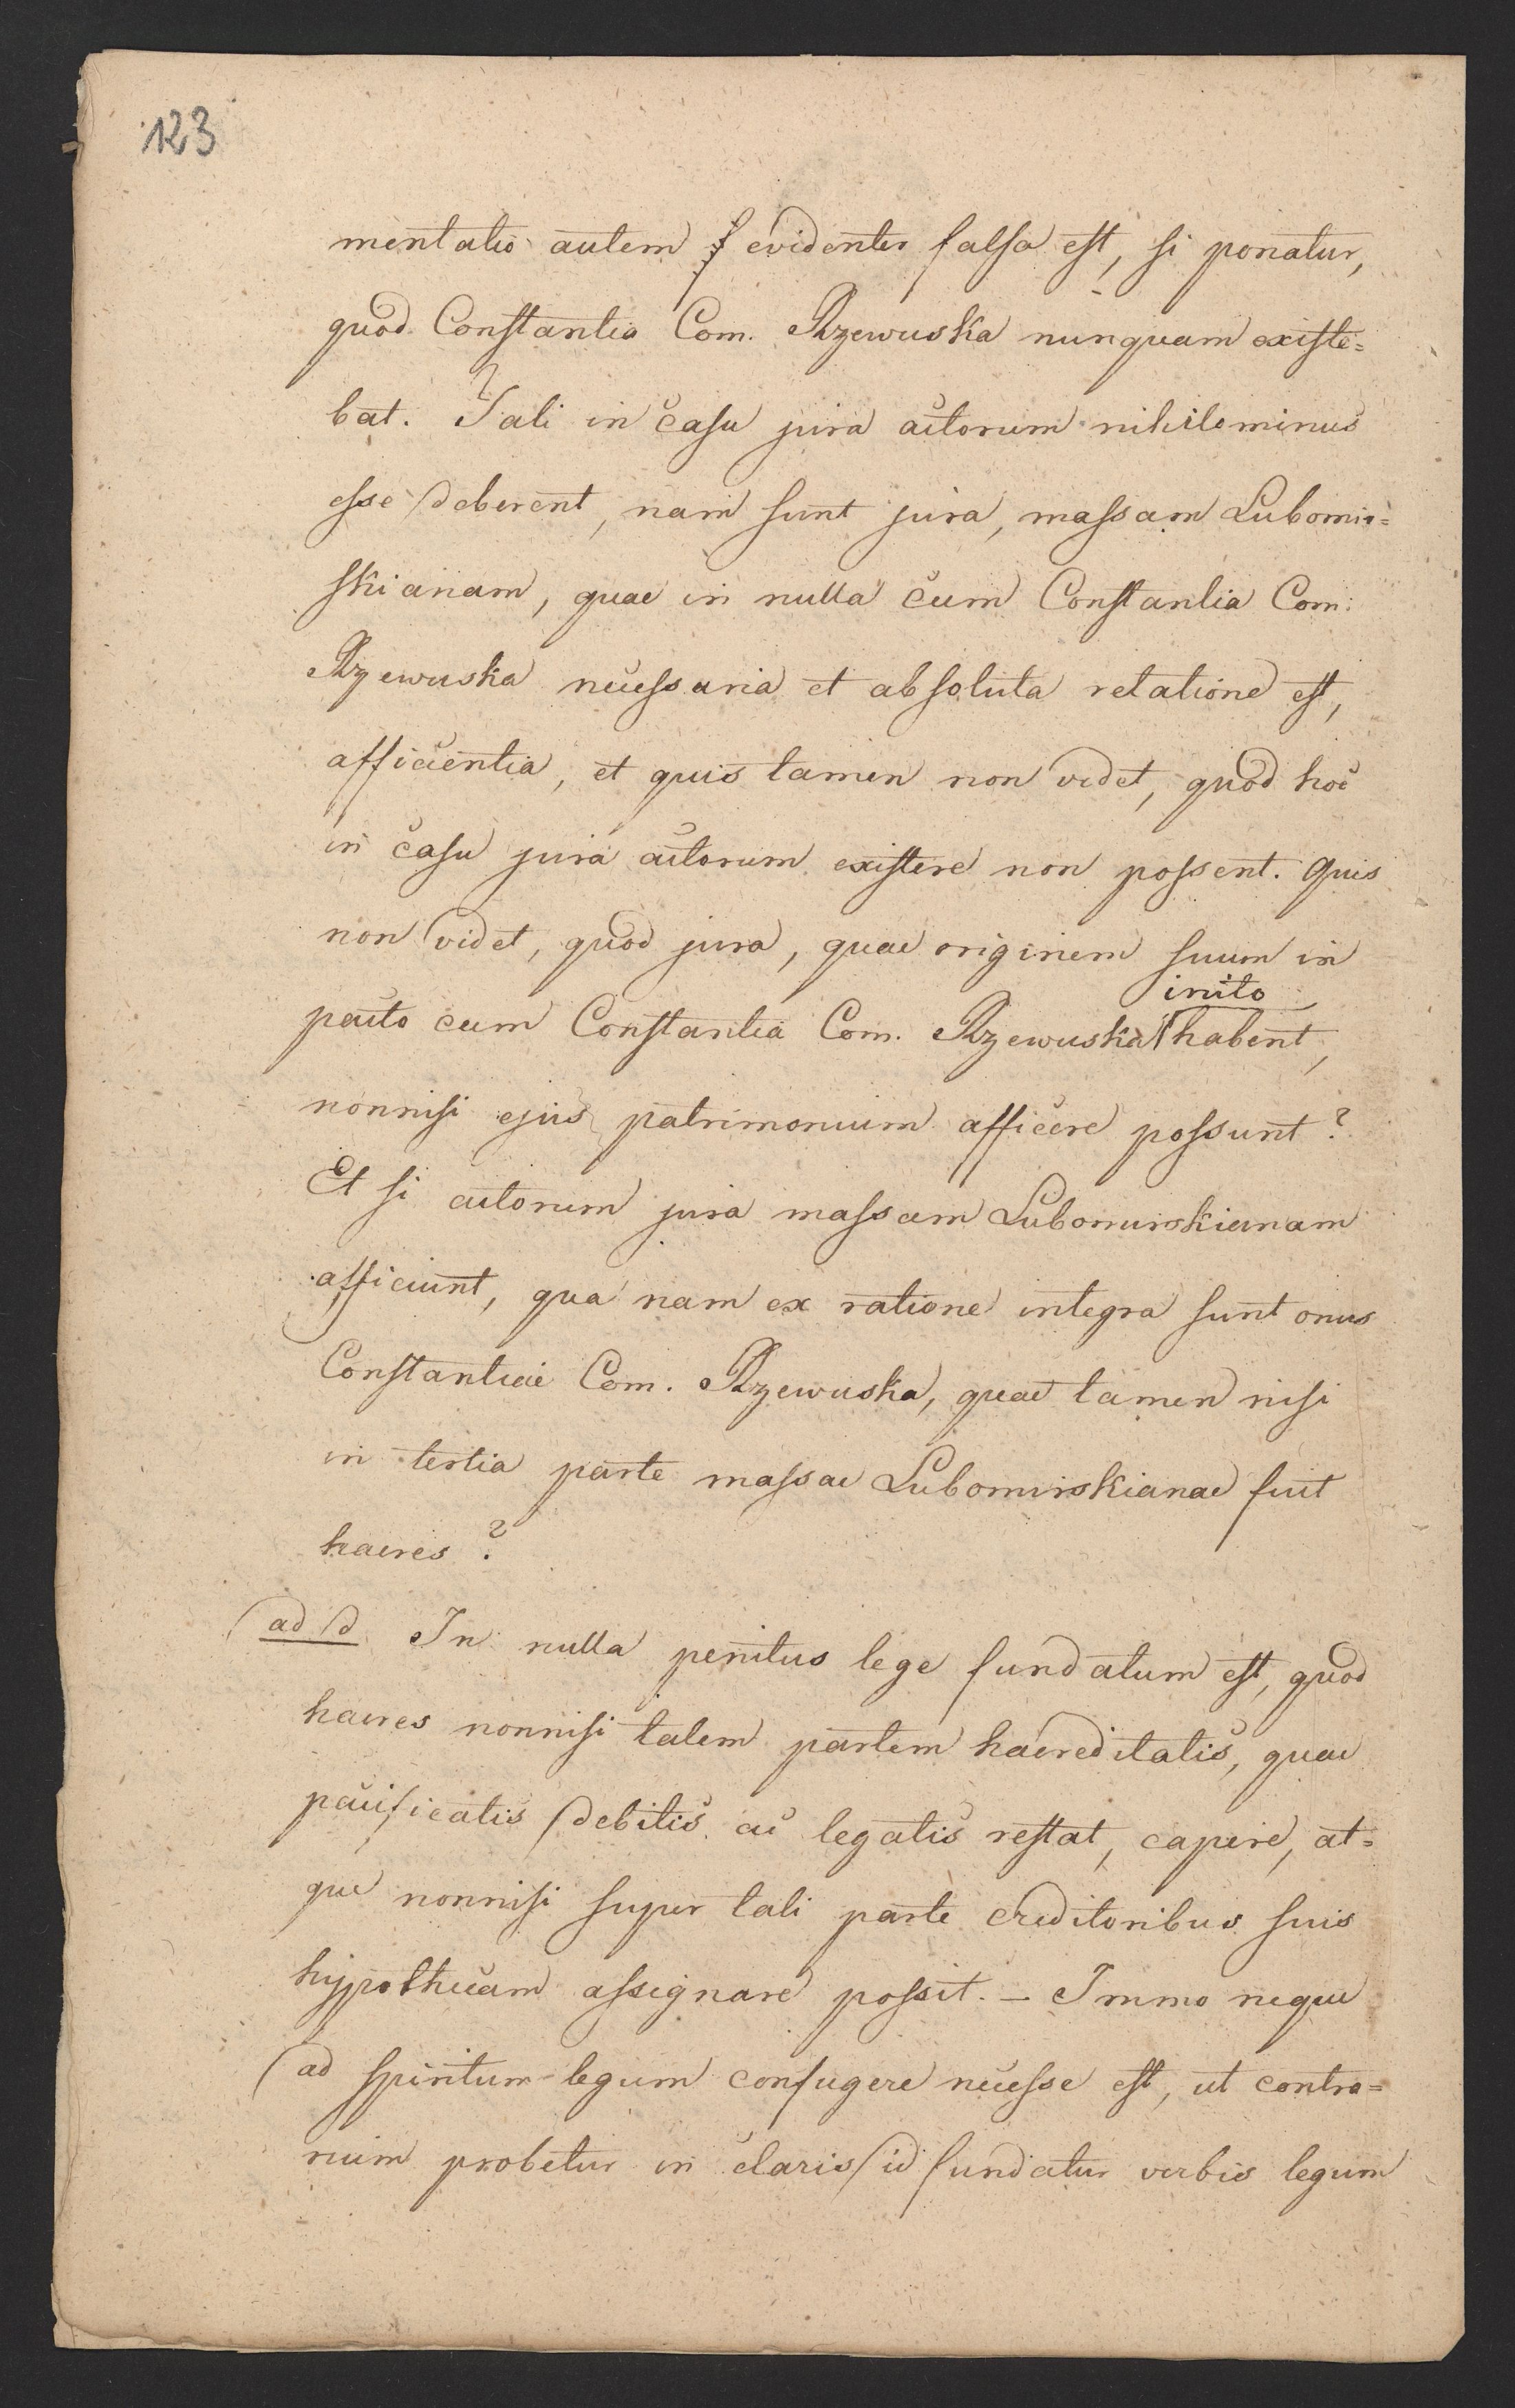 123
mentatio autem evidenter falsa est, si ponatur,
quod Constantia Com. Rzewuska nunquam existe=
bat. Tali in casu jura actorum nihilominus
esse deberent, nam sunt jura, massam Lubomir=
skianam, quae in nulla cum Constantia Com:
Rzewuska necessaria et absoluta relatione est,
afficientia, et quis tamen non videt, quod hoc
in casu jura actorum existere non possent. Quis
non videt, quod jura, quae originem suum in
pacto cum Constantia Com. Rzewuska inito habent,
nonnisi ejus patrimonium afficere possunt?
Et si actorum jura massam Lubomirskianam
afficiunt, qua nam ex ratione integra sunt onus
Constantiae Com. Rzewuska, quae tamen nisi
in tertia parte massae Lubomirskianae fuit
haeres?
ad d In nulla penitus lege fundatum est, quod
haeres nonnisi talem partem haereditatis, quae
pacificatis debitis ac legatis restat, capere, at=
que nonnisi super tali parte creditoribus suis
hypothecam assignare possit. – Immo neque
ad spiritum legum confugere necesse est, ut contra=
rium probetur in claris id fundatur verbis legum